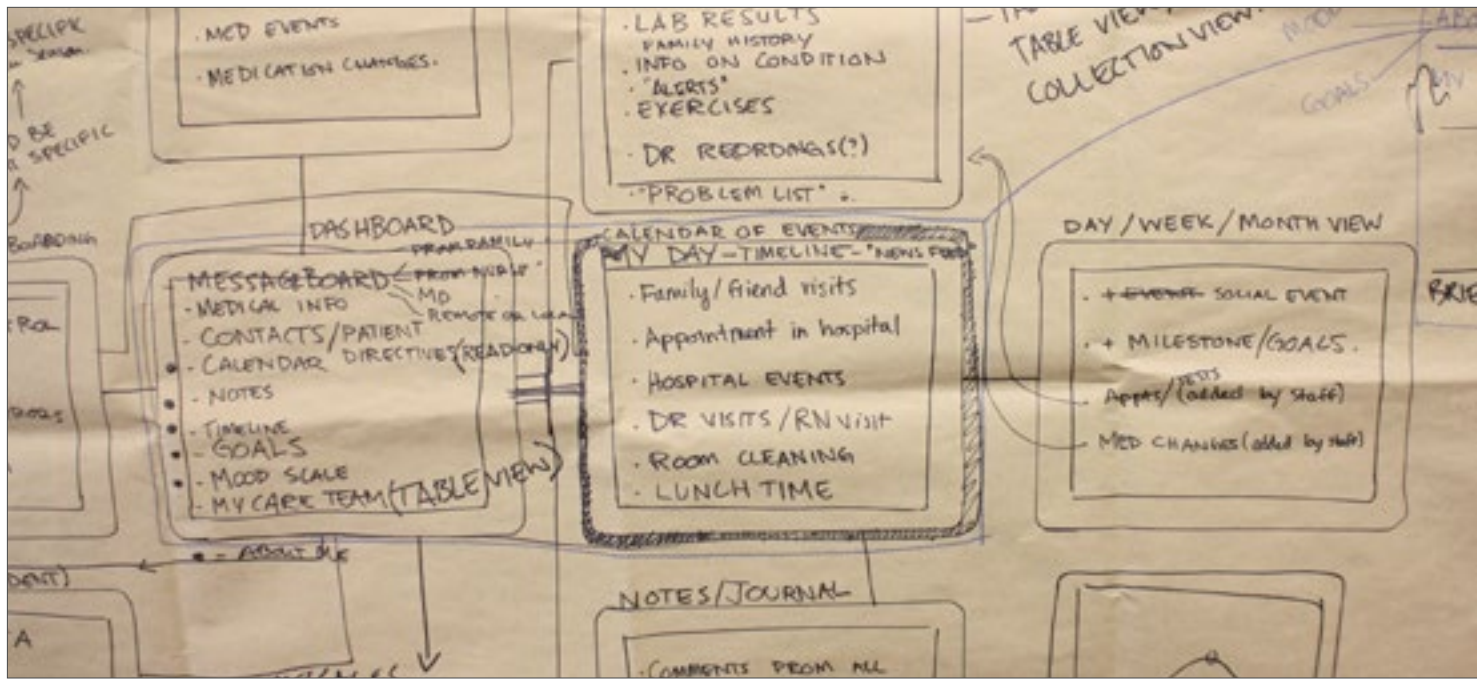 SPECIFIC
· MED EVENTS
· MEDICATION CHANGES.
· LAB RESULTS
FAMILY HISTORY
· INFO ON CONDITION
· "ALERTS"
· EXERCISES
· DR REORDINGS(?)
· "PROBLEM LIST"
TABLE VIEW
COLLECTION VIEW.
MOOD
GOALS
BE
SPECIFIC
DASHBOARD
MESSAGEBOARD
FROM FAMILY
FROM NURSE
MD
REMOTE OR LOCAL
- MEDICAL INFO
- CONTACTS/PATIENT
DIRECTIVES (READ ONLY)
· - CALENDAR
· - NOTES
· - TIMELINE
· - GOALS
· - MOOD SCALE
- MY CARE TEAM (TABLE VIEW)
• = ABOUT ME
CALENDAR OF EVENTS
MY DAY - TIMELINE - "NEWS FEED"
· Family/friend visits
· Appointment in hospital
· HOSPITAL EVENTS
· DR VISITS / RN Visit
· ROOM CLEANING
· LUNCH TIME
DAY / WEEK / MONTH VIEW
· + EVENT SOCIAL EVENT
· + MILESTONE/GOALS.
· Appts/TESTS (added by staff)
· MED CHANGES (added by staff)
BRIE
NOTES/JOURNAL
· COMMENTS FROM ALL
DENT)
A